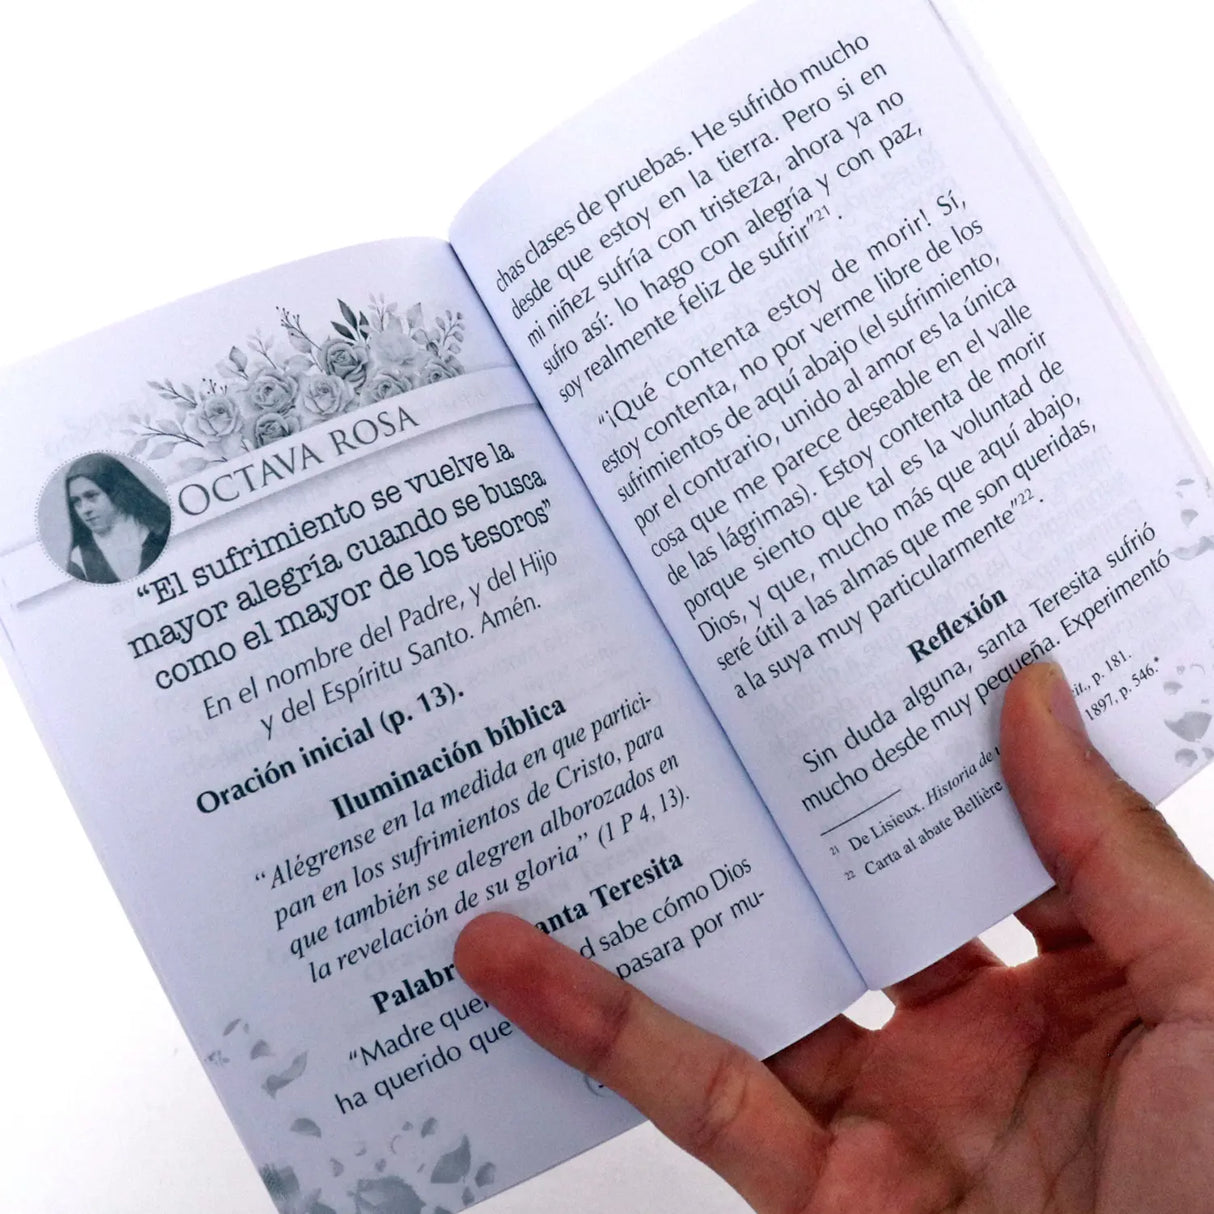 OCTAVA ROSA
“El sufrimiento se vuelve la
mayor alegría cuando se busca
como el mayor de los tesoros”
En el nombre del Padre, y del Hijo
y del Espíritu Santo. Amén.
Oración inicial (p. 13).
Iluminación bíblica
“Alégrense en la medida en que partici-
pan en los sufrimientos de Cristo, para
que también se alegren alborozados en
la revelación de su gloria” (1 P 4, 13).
Teresita
“Madre
sabe cómo Dios
ha querido que
pasara por mu-
chas clases de pruebas. He sufrido mucho
desde que estoy en la tierra. Pero si en
mi niñez sufría con tristeza, ahora ya no
sufro así: lo hago con alegría y con paz,
soy realmente feliz de sufrir”21.
“¡Qué contenta estoy de morir! Sí,
estoy contenta, no por verme libre de los
sufrimientos de aquí abajo (el sufrimiento,
por el contrario, unido al amor es la única
cosa que me parece deseable en el valle
de las lágrimas). Estoy contenta de morir
porque siento que tal es la voluntad de
Dios, y que, mucho más que aquí abajo,
seré útil a las almas que me son queridas,
a la suya muy particularmente”22.
Reflexión
Sin duda alguna, santa Teresita sufrió
mucho desde muy pequeña. Experimentó
21 De Lisieux. Historia de p. 181.
22 Carta al abate Bellière 1897, p. 546.*